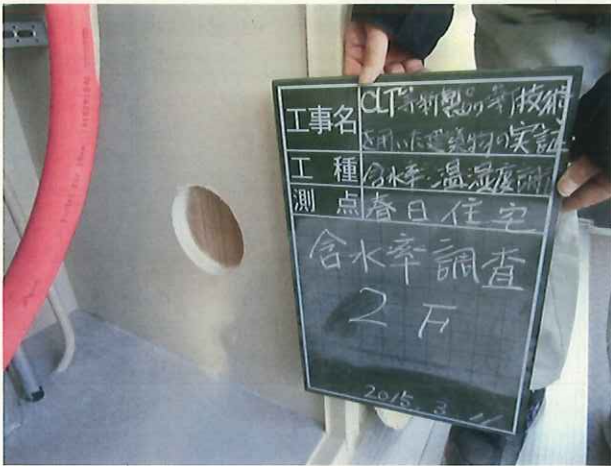 工事名 CLT等新製品・新技術
を用いた建築物の実証
工種 含水率・温湿度
測点 春日住宅
含水率調査
2F
2015. 3. 11